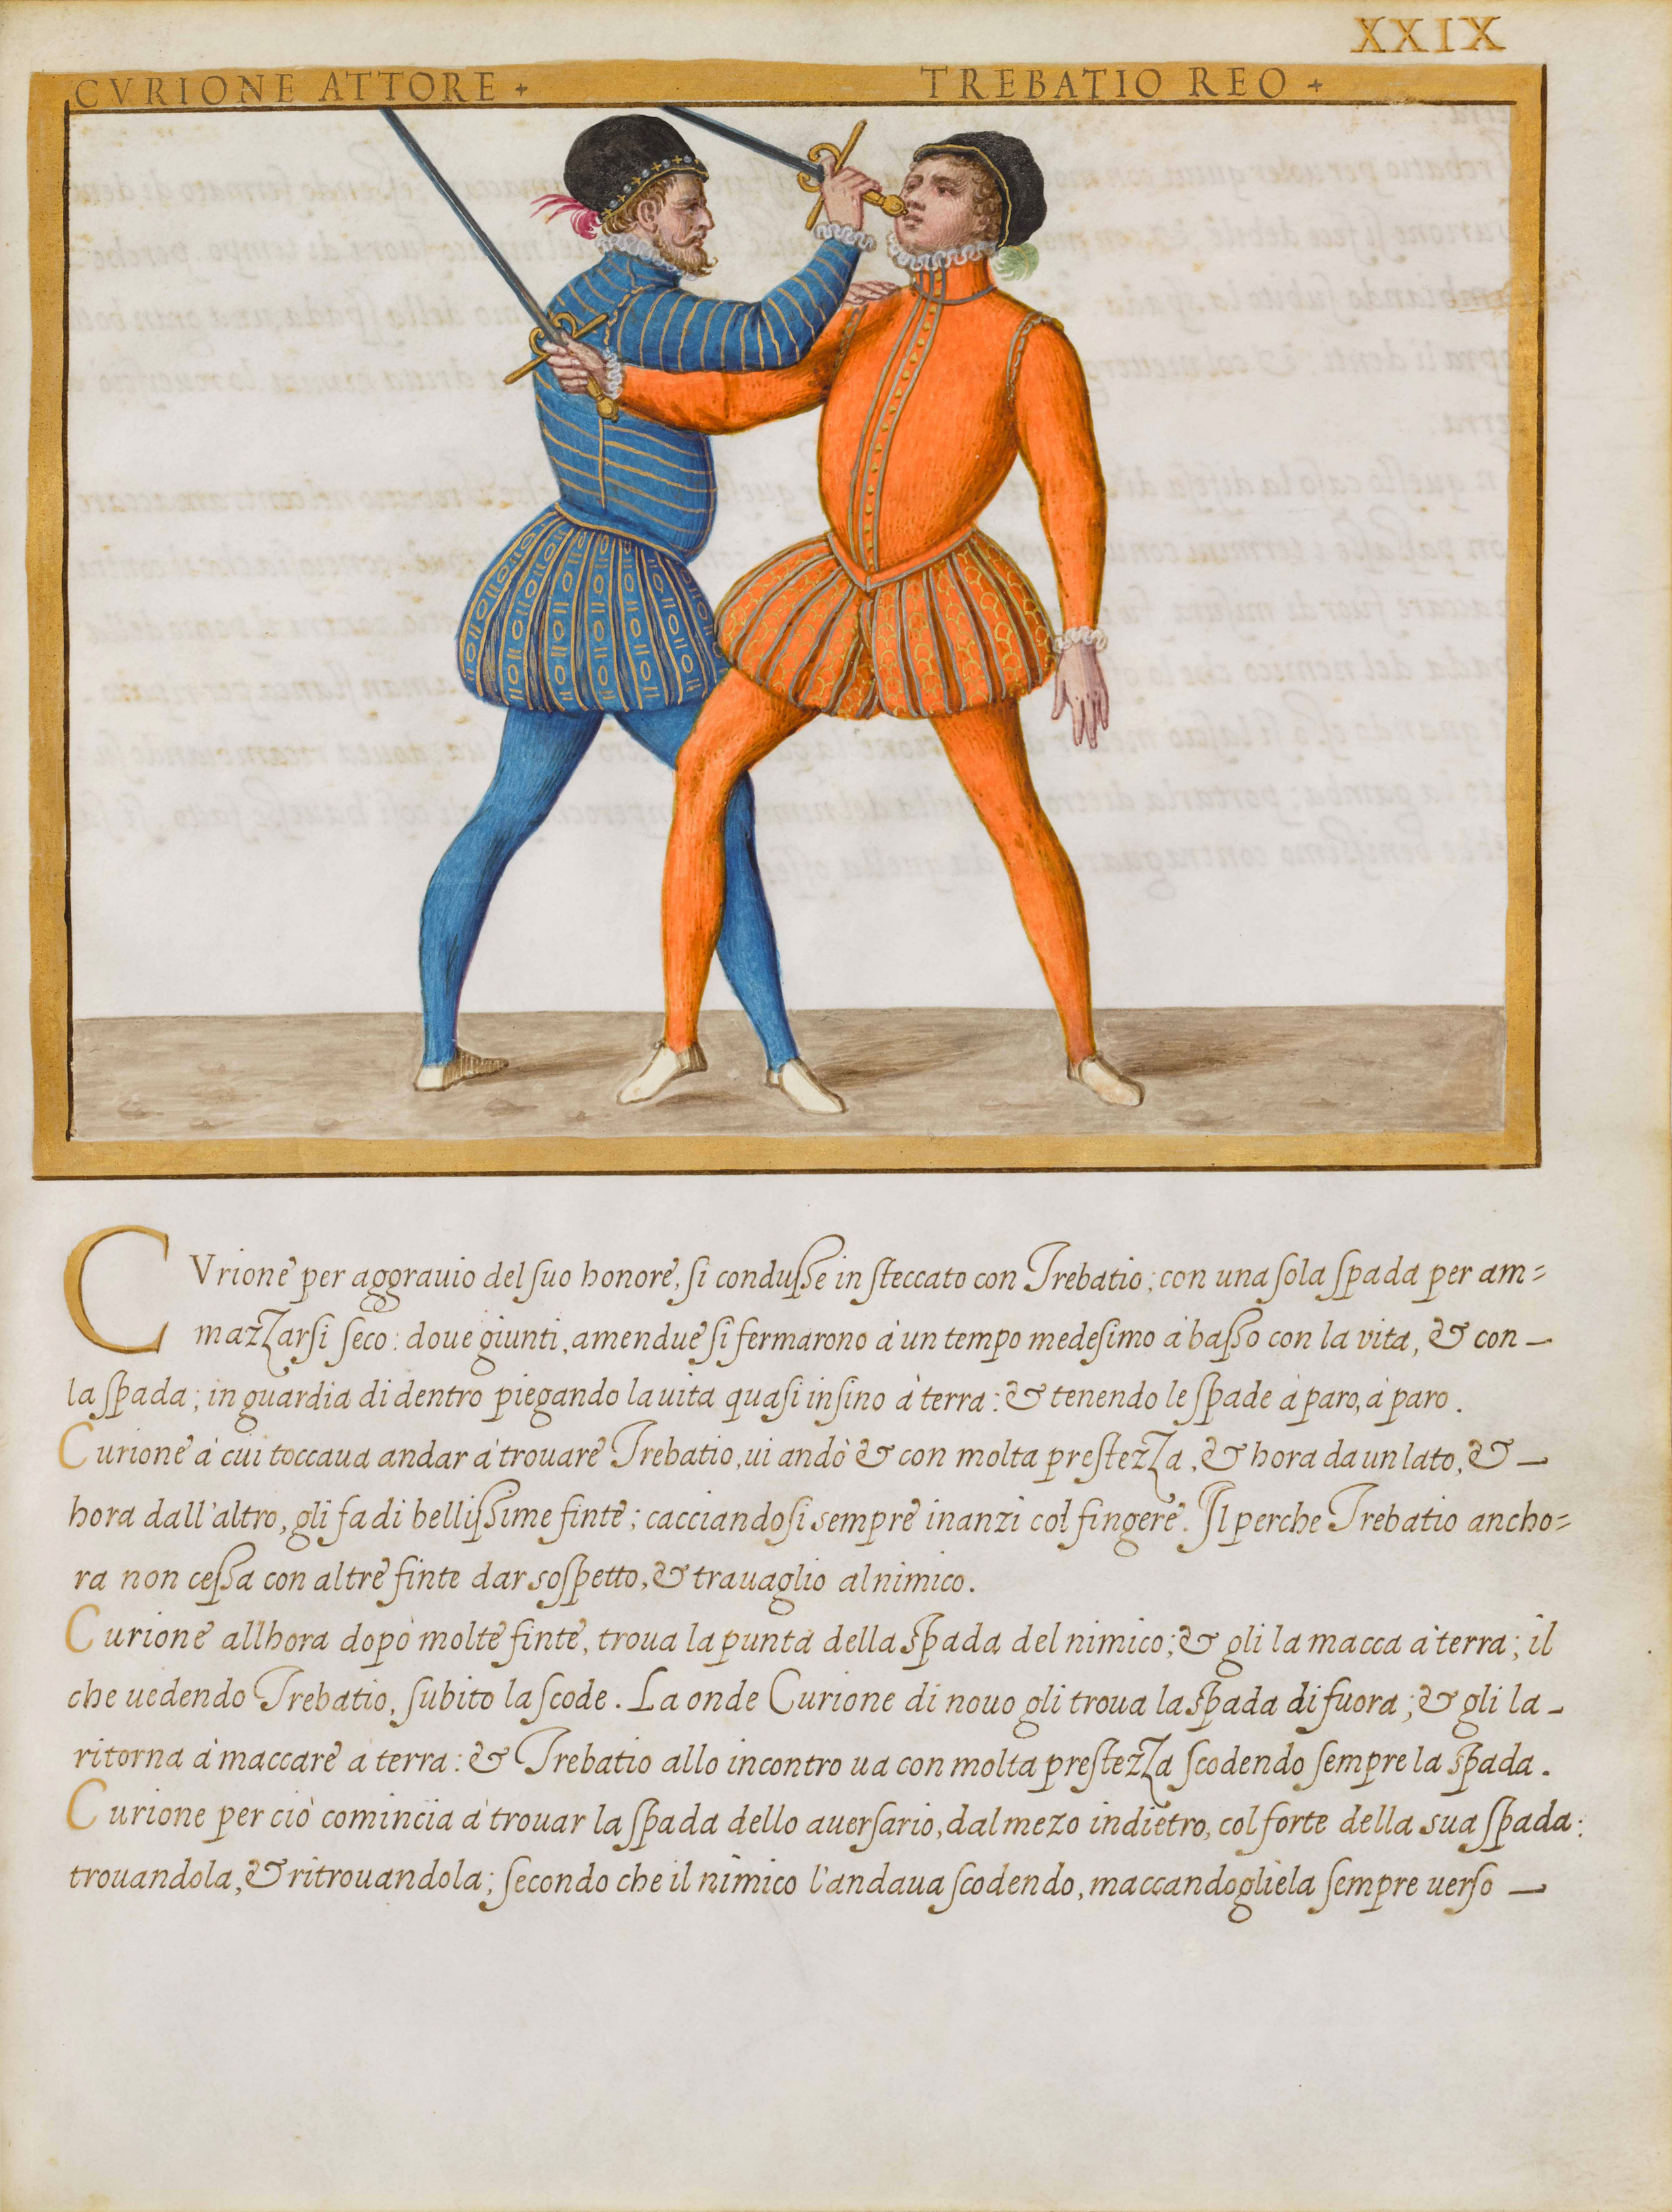 XXIX
CVRIONE ATTORE + TREBATIO REO +
CVrione per aggrauio del ſuo honore, ſi conduſſe in ſteccato con Trebatio; con una ſola ſpada per am=
mazzarſi ſeco: doue giunti, amendue ſi fermarono à un tempo medeſimo à baſſo con la vita, & con —
la ſpada; in guardia di dentro piegando la uita quaſi inſino à terra: & tenendo le ſpade à paro, à paro.
Curione à cui toccaua andar à trouare Trebatio, ui andò & con molta preſtezza, & hora da un lato, & —
hora dall'altro, gli fa di belliſſime finte; cacciandoſi sempre inanzi col fingere. Il perche Trebatio ancho=
ra non ceſſa con altre finte dar soſpetto, & trauaglio al nimico.
Curione allhora dopo molte finte, troua la punta della ſpada del nimico; & gli la macca à terra; il
che uedendo Trebatio, ſubito la ſcode. La onde Curione di nouo gli troua la ſpada di fuora; & gli la -
ritorna à maccare à terra: & Trebatio allo incontro ua con molta preſtezza ſcodendo ſempre la ſpada.
Curione per ciò comincia à trouar la ſpada dello auerſario, dal mezo indietro, col forte della sua ſpada:
trouandola, & ritrouandola; ſecondo che il nimico l'andaua ſcodendo, maccandogliela ſempre uerſo —